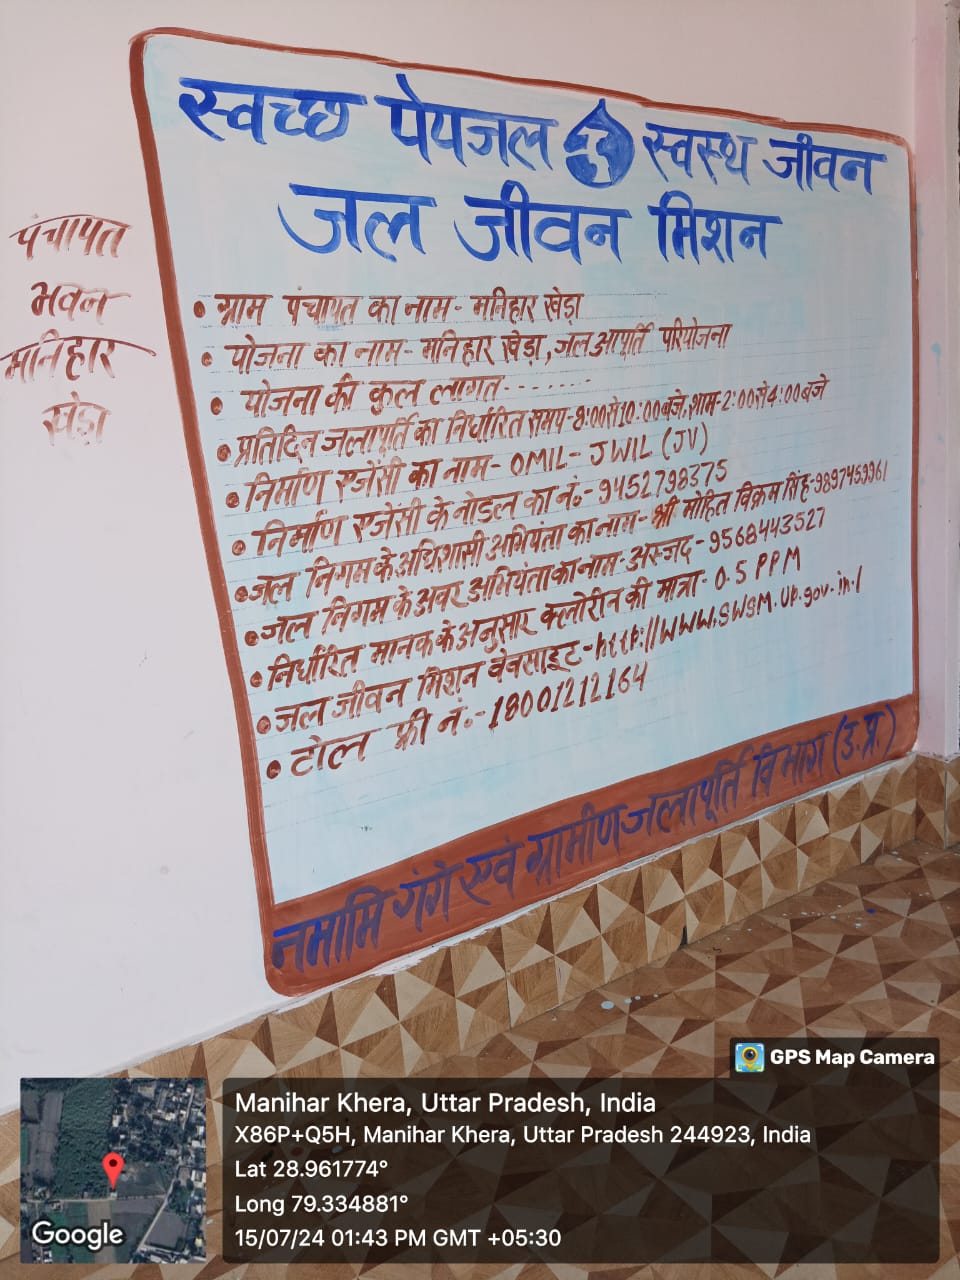 स्वच्छ पेयजल स्वस्थ जीवन
जल जीवन मिशन
पंचायत
भवन
मनिहार
खेड़ा
• ग्राम पंचायत का नाम - मनिहार खेड़ा
• योजना का नाम - मनिहार खेड़ा, जल आपूर्ति परियोजना
• योजना की कुल लागत - - - - - - -
• प्रतिदिन जलापूर्ति का निर्धारित समय - 8:00 से 10:00 बजे, शाम - 2:00 से 4:00 बजे
• निर्माण एजेंसी का नाम - OMIL - JWIL (JV)
• निर्माण एजेंसी के नोडल का नं॰ - 9452798375
• जल निगम के अधिशासी अभियंता का नाम - श्री मोहित विक्रम सिंह - 9897459961
• जल निगम के अवर अभियंता का नाम - अस्जद - 9568443527
• निर्धारित मानक के अनुसार क्लोरीन की मात्रा - 0.5 PPM
• जल जीवन मिशन वेबसाइट - http://www.swsm.up.gov.in/
• टोल फ्री नं॰ - 18001212164
नमामि गंगे एवं ग्रामीण जलापूर्ति विभाग (उ.प्र.)
GPS Map Camera
Manihar Khera, Uttar Pradesh, India
X86P+Q5H, Manihar Khera, Uttar Pradesh 244923, India
Lat 28.961774°
Long 79.334881°
15/07/24 01:43 PM GMT +05:30
Google